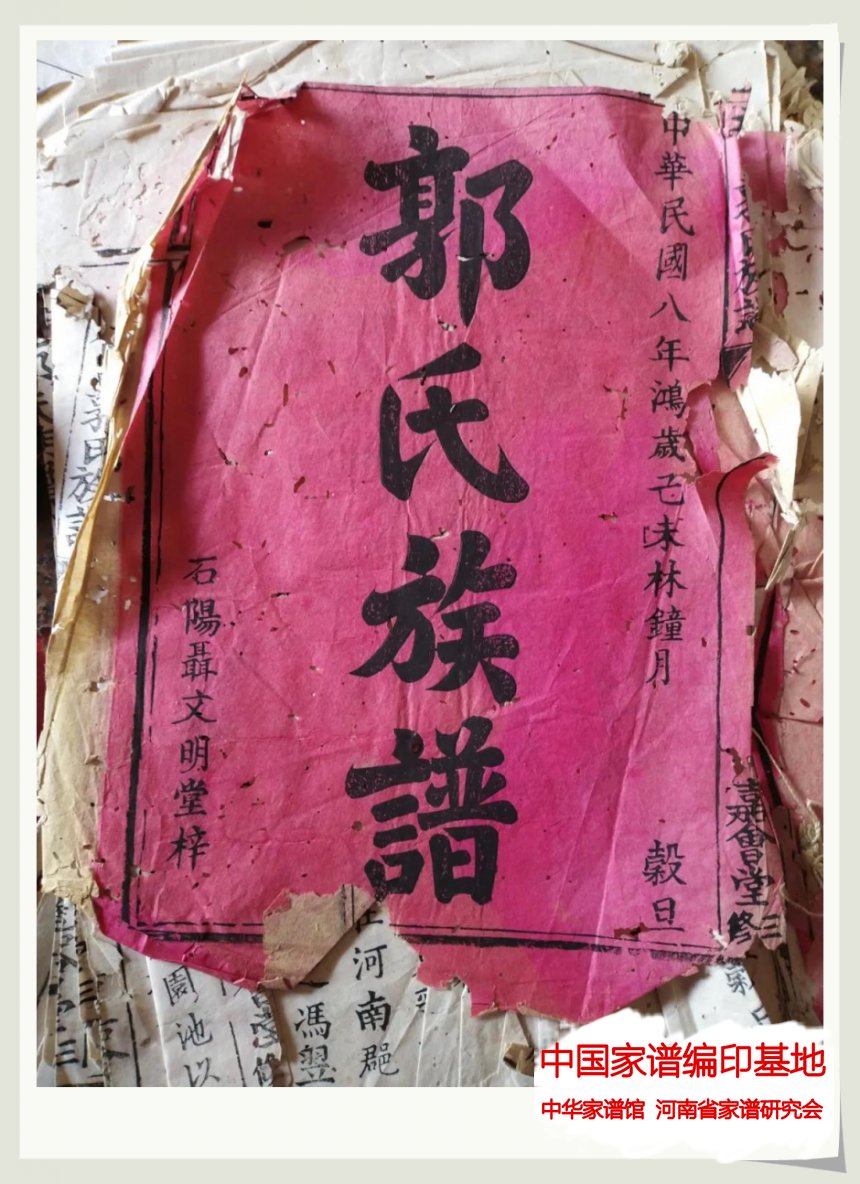 中華民國八年鴻歲己未林鐘月
穀旦
郭氏族譜
石陽聶文明堂梓
嘉會堂
三修
郭氏族
河南郡
馮翌
園池以
中国家谱编印基地
中华家谱馆 河南省家谱研究会